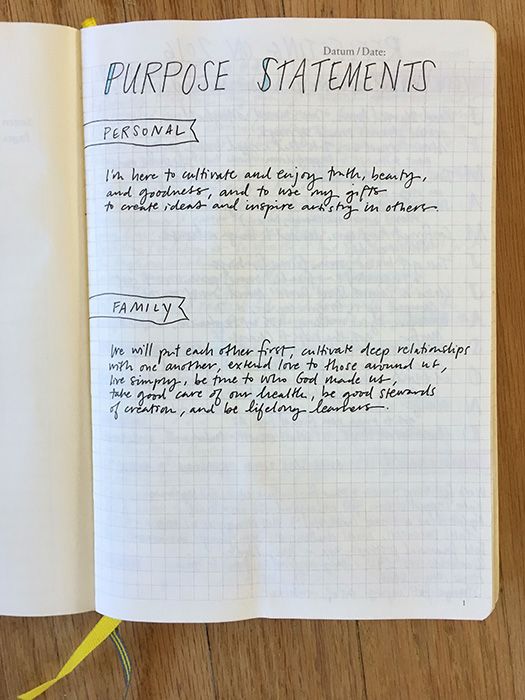 Datum / Date:
PURPOSE STATEMENTS
PERSONAL
I'm here to cultivate and enjoy truth, beauty,
and goodness, and to use my gifts
to create ideas and inspire artistry in others.
FAMILY
We will put each other first, cultivate deep relationships
with one another, extend love to those around us,
live simply, be true to who God made us,
take good care of our health, be good stewards
of creation, and be lifelong learners.
1